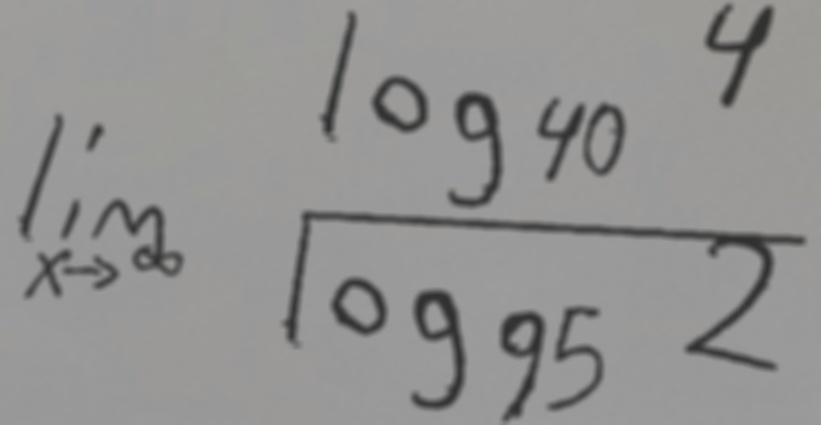 lim x→∞ log₄₀ 4 / log₉₅ 2